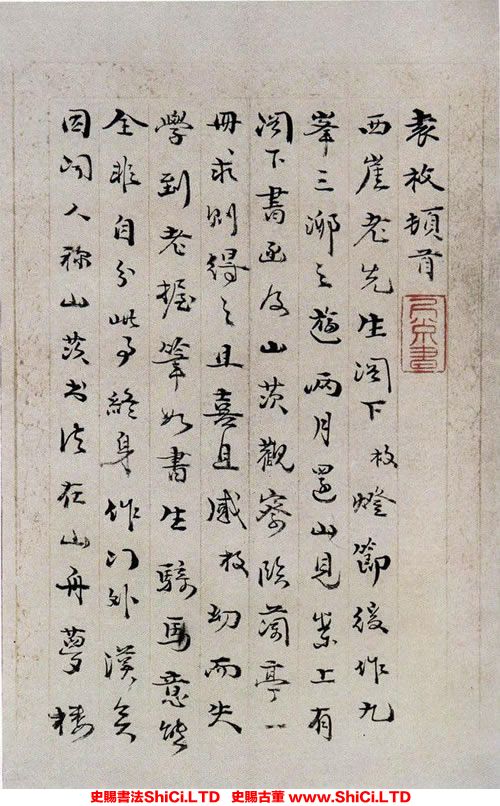 袁枚頓首
西崖老先生閣下枚燈節後作九
峯三泖之遊兩月還山見案上有
閣下書函及山茨觀察臨蘭亭一
冊求則得之且喜且感枚幼而失
學到老握筆如書生騎馬意態
全非自分此事終身作門外漢矣
因聞人称山茨書法在山舟夢樓
史賜書法ShiCi.LTD 史賜古董 www.ShiCi.LTD